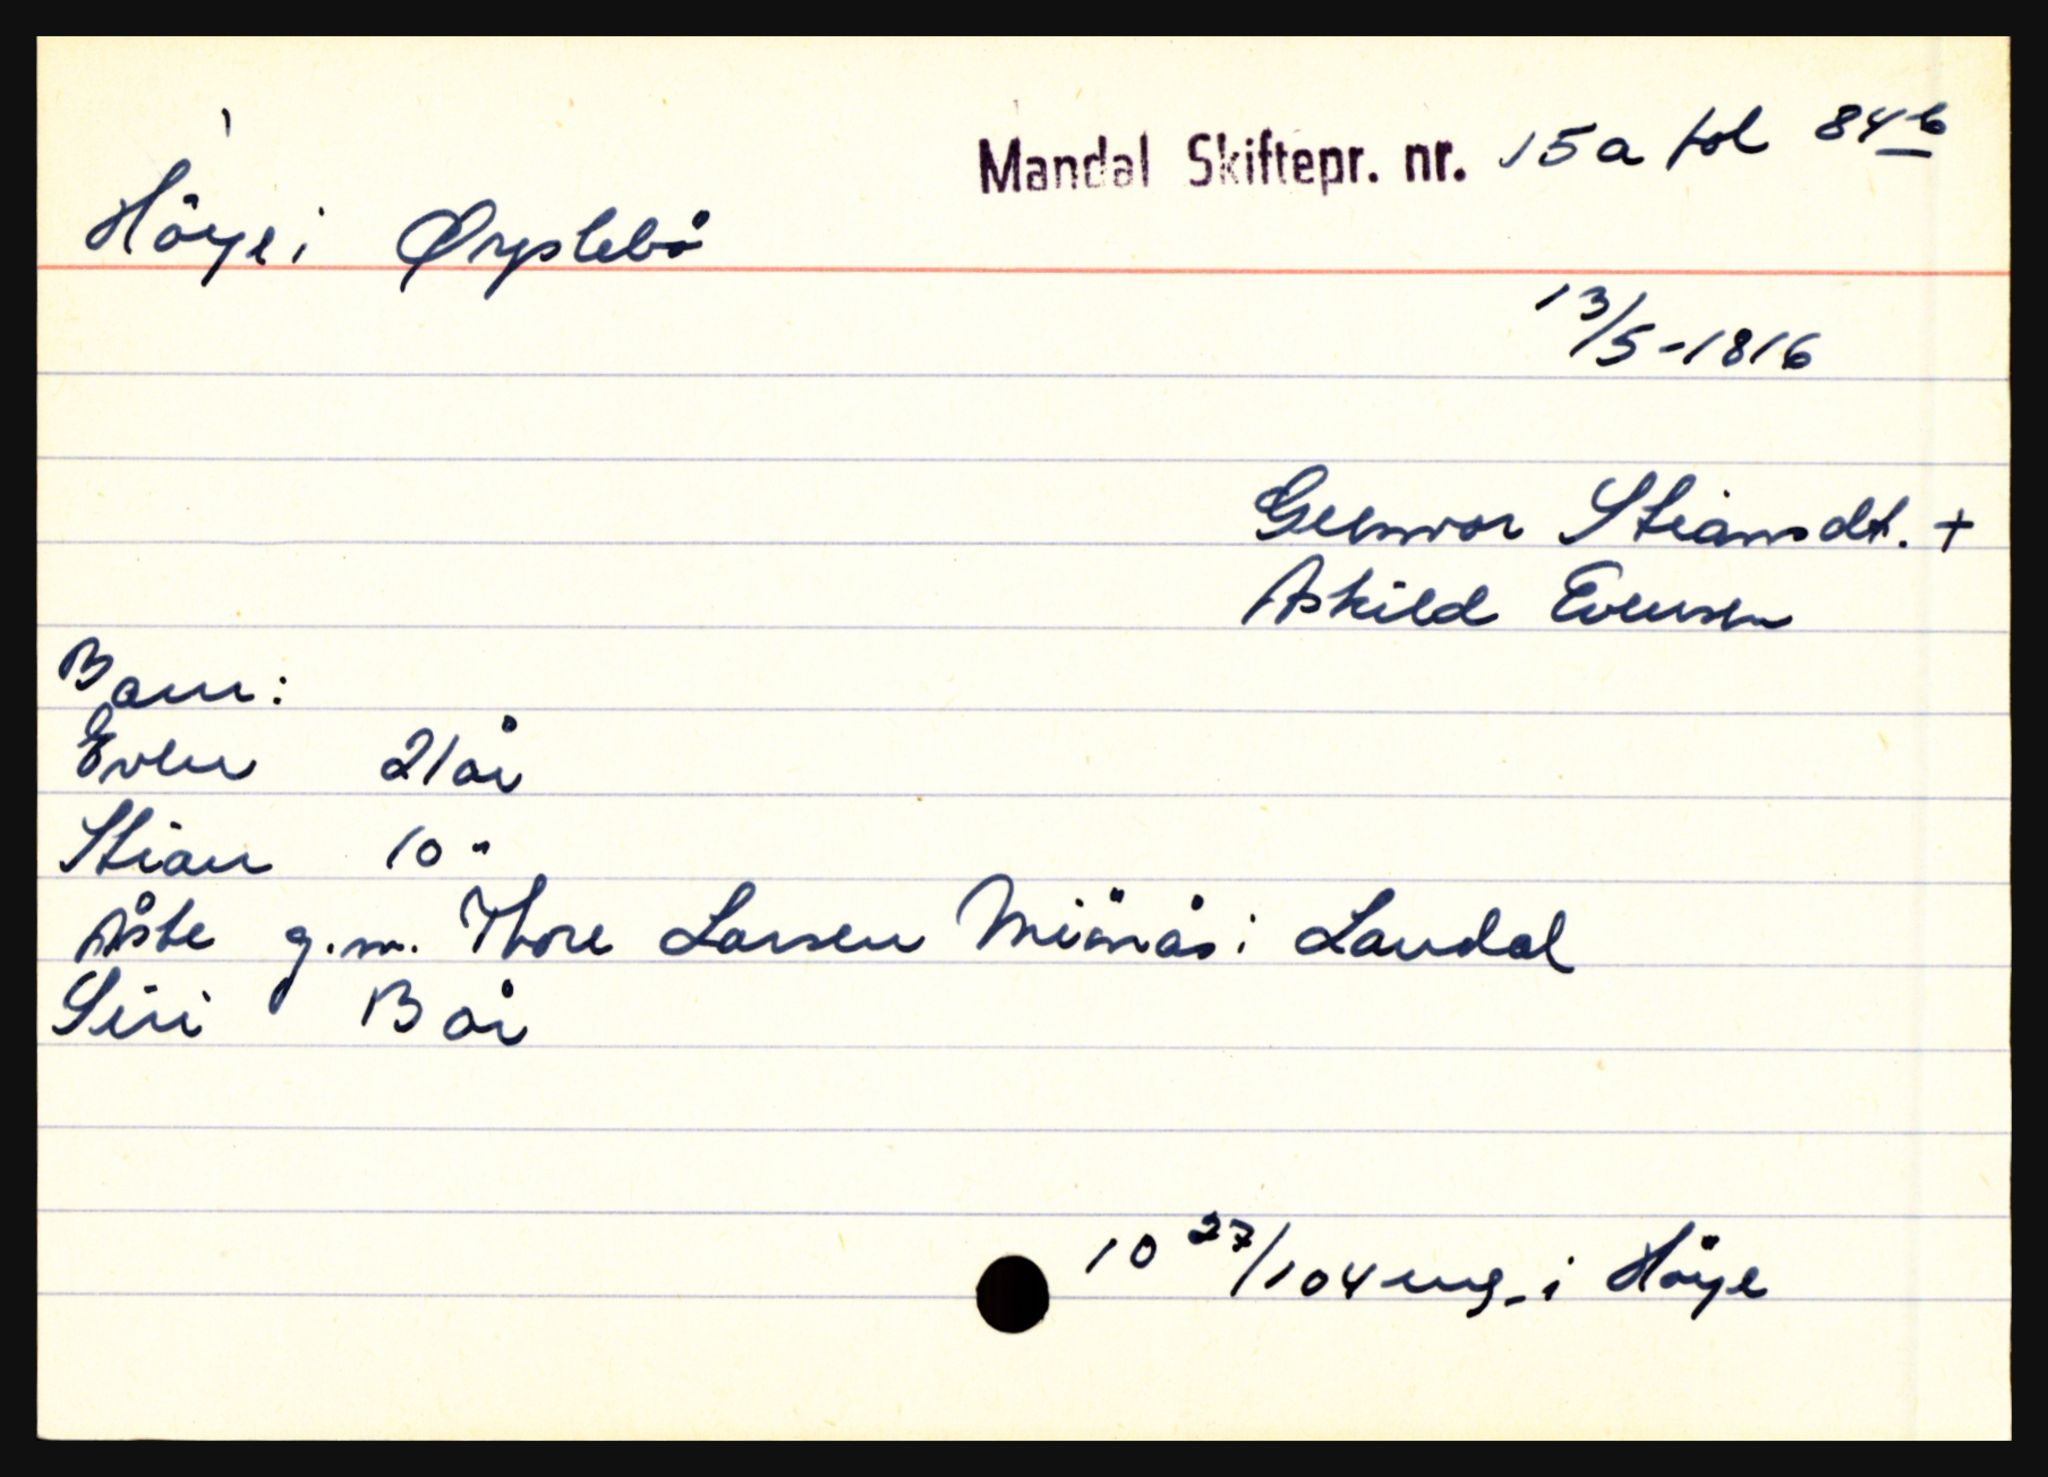 Mandal Skiftepr. nr. 15a fol 84 b
Höye i Øyslebö
13/5-1816
Gunvor Stiansdt. +
Askild Evensen
Barn:
Even 21 år
Stian 10 "
Åste g.m. Thore Larsen i Laudal
Siri 13 år
10 27/104 mg. i Höye